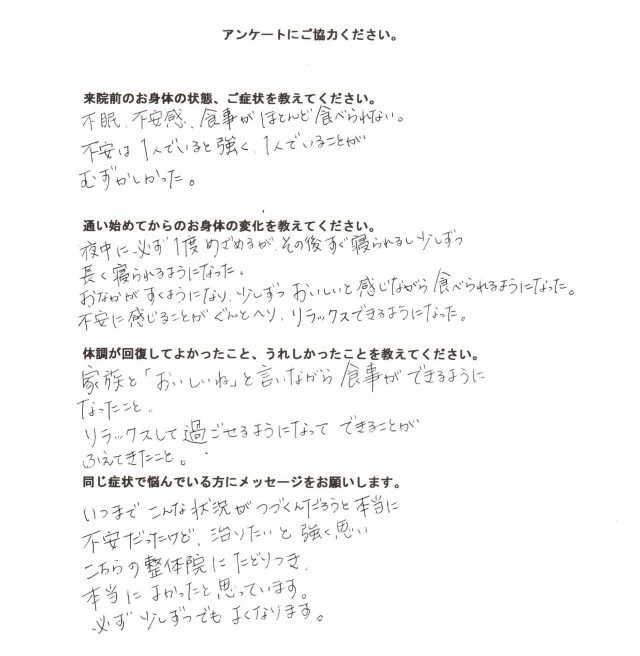 アンケートにご協力ください。
来院前のお身体の状態、ご症状を教えてください。
不眠、不安感、食事がほとんど食べられない。
不安は1人でいると強く、1人でいることが
むずかしかった。
通い始めてからのお身体の変化を教えてください。
夜中に必ず1度めざめるが、その後すぐ寝られるし少しずつ
長く寝られるようになった。
おなかがすくようになり、少しずつおいしいと感じながら食べられるようになった。
不安に感じることがぐんとヘリ、リラックスできるようになった。
体調が回復してよかったこと、うれしかったことを教えてください。
家族と「おいしいね」と言いながら食事ができるように
なったこと。
リラックスして過ごせるようになってできることが
ふえてきたこと。
同じ症状で悩んでいる方にメッセージをお願いします。
いつまでこんな状況がつづくんだろうと本当に
不安だったけど、治りたいと強く思い
こちらの整体院にたどりつき、
本当によかったと思っています。
必ず少しずつでもよくなります。